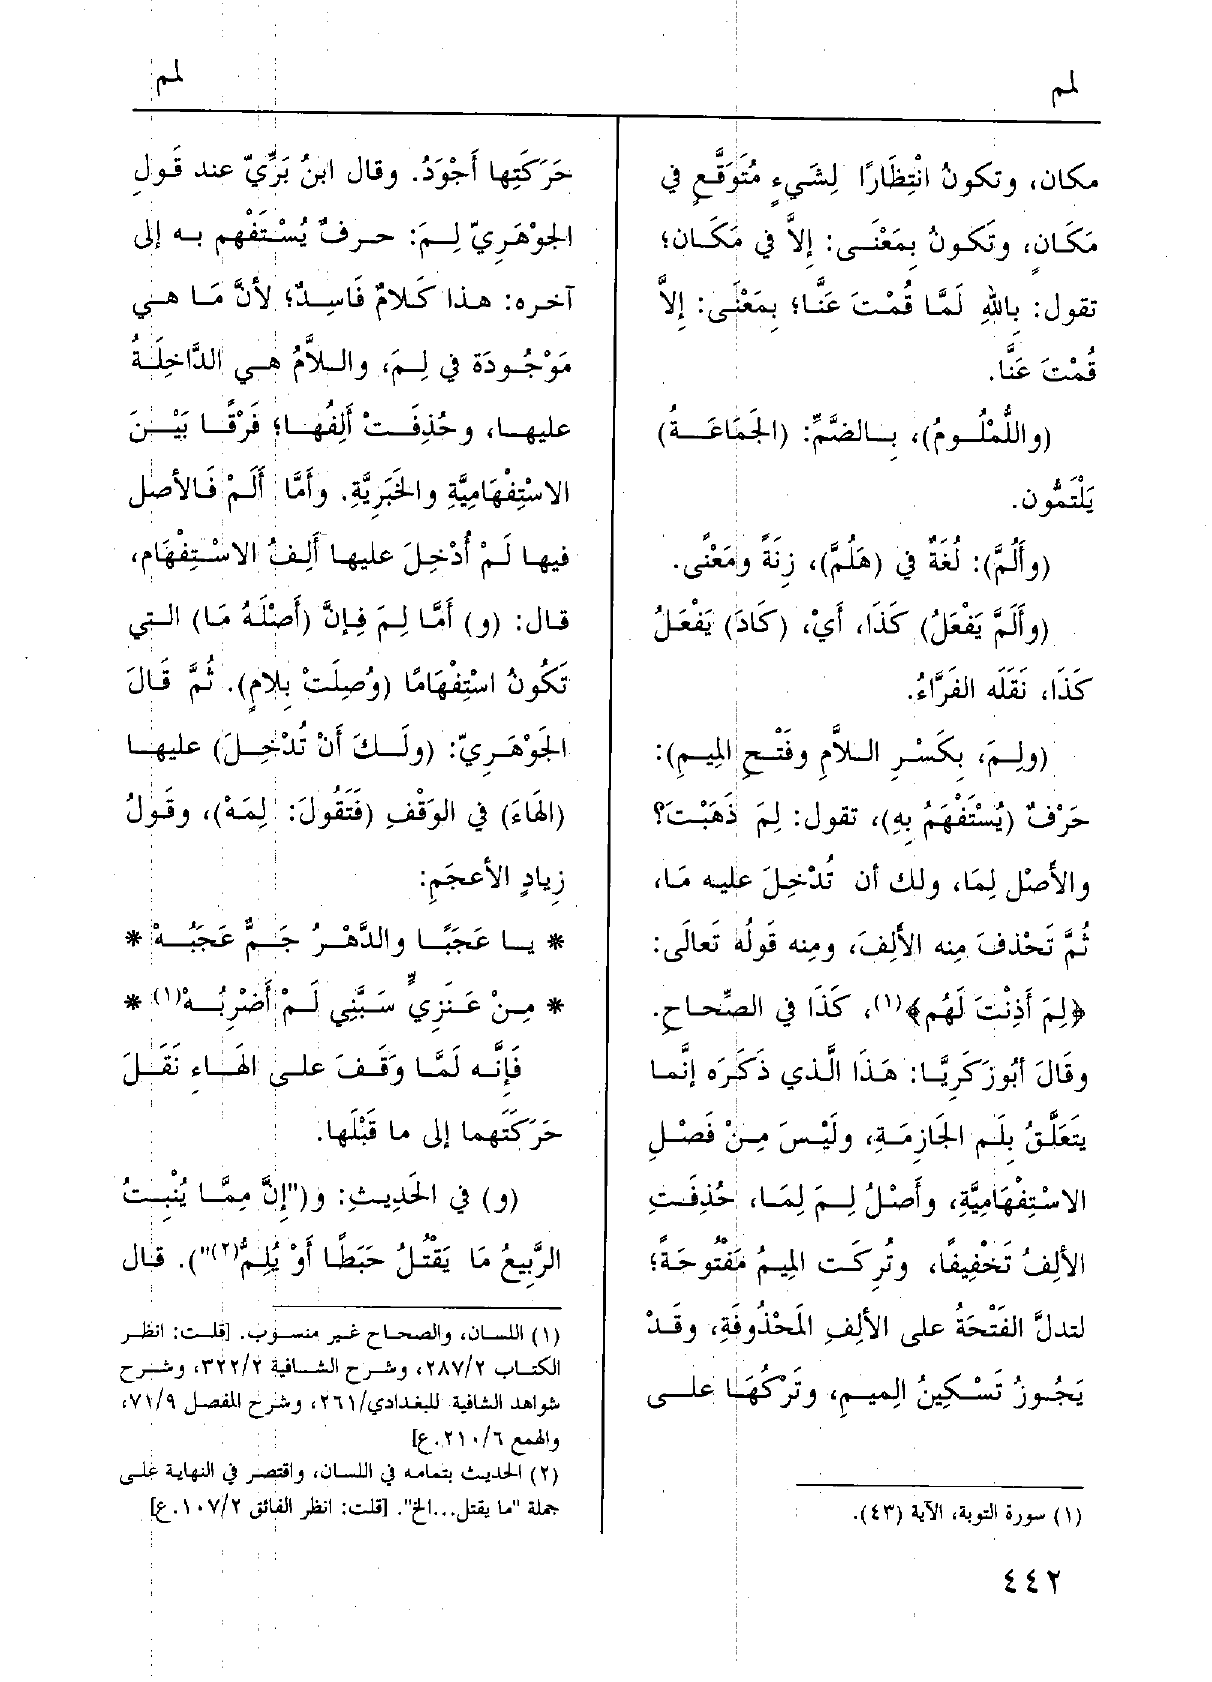 لمم
لمم
مكان، وتكونُ انْتِظَارًا لِشَيءٍ مُتَوَقَّعٍ في
مَكَانٍ، وتَكونُ بِمَعْنَى: إلاَّ في مَكَان؛
تقول: بِاللهِ لَمَّا قُمْتَ عَنَّا؛ بِمَعْنَى: إلاَّ
قُمْتَ عَنَّا.
(واللُّمْلُومُ)، بالضَّمِّ: (الجَمَاعَةُ)
يَلْتَمُّون.
(وأَلُمَّ): لُغَةٌ في (هَلُمَّ)، زِنَةً ومَعْنًى.
(وأَلَمَّ يَفْعَلُ) كَذَا، أَيْ، (كَادَ) يَفْعَلُ
كَذَا، نَقَلَه الفَرَّاءُ.
(ولِمَ، بِكَسْرِ اللاَّمِ وفَتْحِ المِيمِ):
حَرْفٌ (يُسْتَفْهَمُ بِهِ)، تقول: لِمَ ذَهَبْتَ؟
والأَصْل لِمَا، ولك أن تُدْخِلَ عليه مَا،
ثُمَّ تَحْذفَ مِنه الأَلِفَ، ومِنه قَولُه تَعالَى:
﴿لِمَ أَذِنْتَ لَهُم﴾(١)، كَذَا في الصِّحاحِ.
وقَالَ أبُوزَكَرِيَّا: هَذَا الَّذي ذَكَرَه إنَّما
يتعَلَّقُ بِلَم الجَازِمَةِ، ولَيْسَ مِنْ فَصْلِ
الاسْتِفْهَامِيَّةِ، وأَصْلُ لِمَ لِمَا، حُذِفَتِ
الأَلِفُ تَخْفِيفًا، وتُرِكَت المِيمُ مَفْتُوحَةً؛
لتدلَّ الفَتْحَةُ على الأَلِفِ المَحْذُوفَةِ، وقَدْ
يَجُوزُ تَسْكِينُ المِيمِ، وتَرْكُهَا على
(١) سورة التوبة، الآية (٤٣).
حَرَكَتِها أَجْوَدُ. وقال ابنُ بَرِّيّ عند قَولِ
الجَوْهَرِيّ لِمَ: حرفٌ يُسْتَفْهم به إلى
آخره: هذا كَلامٌ فَاسِدٌ؛ لأنَّ مَا هي
مَوْجُودَة في لِمَ، واللاَّمُ هي الدَّاخِلَةُ
عليها، وحُذِفَتْ أَلِفُها؛ فَرْقًا بَيْنَ
الاسْتِفْهَامِيَّةِ والخَبَرِيَّةِ. وأَمَّا أَلَمْ فَالأصل
فيها لَمْ أُدْخِلَ عليها أَلِفُ الاسْتِفْهَام،
قال: (و) أَمَّا لِمَ فإنَّ (أَصْلَهُ مَا) التي
تَكُونُ اسْتِفْهَامًا (وُصِلَتْ بِلامٍ). ثُمَّ قَالَ
الجَوْهَرِيّ: (ولَكَ أَنْ تُدْخِلَ) عليها
(الهَاءَ) في الوَقْفِ (فَتَقُولَ: لِمَهْ)، وقَولُ
زِيادٍ الأعجَمِ:
* يا عَجَبًا والدَّهْرُ جَمٌّ عَجَبُهْ *
* مِنْ عَنَزِيٍّ سَبَّنِي لَمْ أَضْرِبُهْ(١) *
فَإنَّه لَمَّا وَقَفَ على الهَاءِ نَقَلَ
حَرَكَتَهما إلى ما قَبْلَها.
(و) في الحَدِيثِ: و("إنَّ مِمَّا يُنْبِتُ
الرَّبِيعُ مَا يَقْتُلُ حَبَطًا أَوْ يُلِمُّ(٢)"). قال
(١) اللسان، والصحاح غير منسوب. [قلت: انظر
الكتاب ٢٨٧/٢، وشرح الشافية ٣٢٢/٢، وشرح
شواهد الشافية للبغدادي/٢٦١، وشرح المفصل ٧١/٩،
والهمع ٢١٠/٦. ع]
(٢) الحديث بتمامه في اللسان، واقتصر في النهاية على
جملة "ما يقتل...الخ". [قلت: انظر الفائق ١٠٧/٢. ع]
٤٤٢